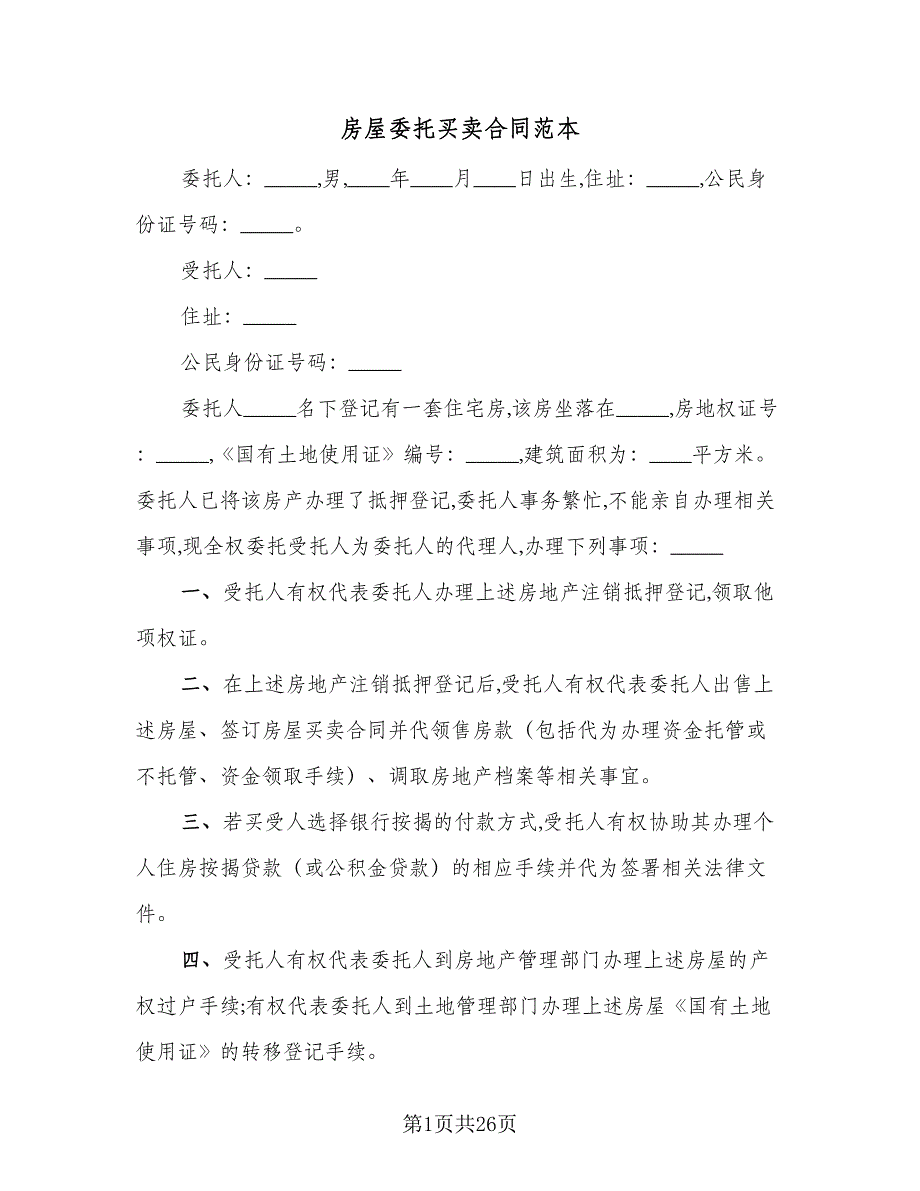 房屋委托买卖合同范本
委托人：_____,男,____年____月____日出生,住址：_____,公民身
份证号码：_____。
受托人：_____
住址：_____
公民身份证号码：_____
委托人_____名下登记有一套住宅房,该房坐落在_____,房地权证号
：_____,《国有土地使用证》编号：_____,建筑面积为：____平方米。
委托人已将该房产办理了抵押登记,委托人事务繁忙,不能亲自办理相关
事项,现全权委托受托人为委托人的代理人,办理下列事项：_____
一、受托人有权代表委托人办理上述房地产注销抵押登记,领取他
项权证。
二、在上述房地产注销抵押登记后,受托人有权代表委托人出售上
述房屋、签订房屋买卖合同并代领售房款（包括代为办理资金托管或
不托管、资金领取手续）、调取房地产档案等相关事宜。
三、若买受人选择银行按揭的付款方式,受托人有权协助其办理个
人住房按揭贷款（或公积金贷款）的相应手续并代为签署相关法律文
件。
四、受托人有权代表委托人到房地产管理部门办理上述房屋的产
权过户手续;有权代表委托人到土地管理部门办理上述房屋《国有土地
使用证》的转移登记手续。
第1页共26页